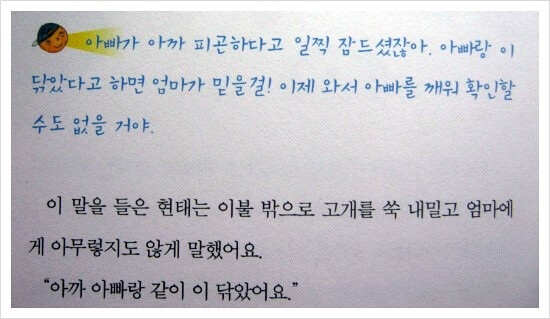 아빠가 아까 피곤하다고 일찍 잠드셨잖아. 아빠랑 이
닦았다고 하면 엄마가 믿을걸! 이제 와서 아빠를 깨워 확인할
수도 없을 거야.
이 말을 들은 현태는 이불 밖으로 고개를 쑥 내밀고 엄마에
게 아무렇지도 않게 말했어요.
“아까 아빠랑 같이 이 닦았어요.”